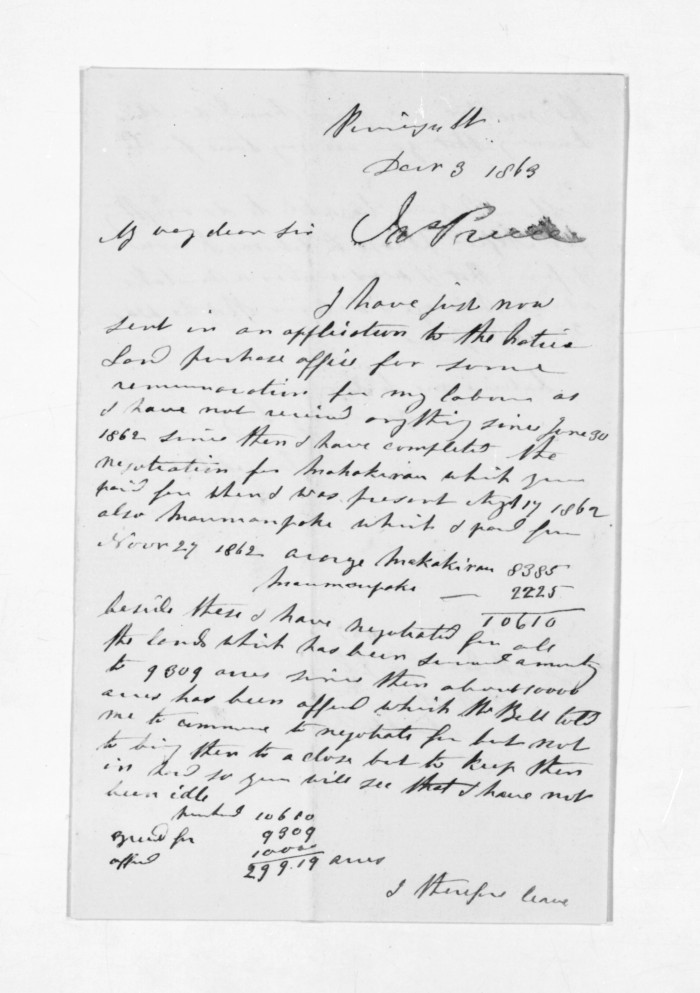 Decr 3 1863
My very dear Sir Jas Preece
I have just now
sent in an application to the Native
Land purchase office for some
remuneration for my labour as
I have not received anything since June 30
1862 since then I have completed the
negotiation for Mahakirau which you
paid for when I was present Augt 17 1862
also Maumaupaki which I paid for
Novr 27 1862 acreage Mahakirau 8385
Maumaupaki — 2225
10610
beside these I have negotiated for all
the lands which has been surveyed amounting
to 9309 acres since then about 10000
acres has been offered which Mr Bell told
me to continue to negotiate for but not
to bring them to a close but to keep them
in hand so you will see that I have not
been idle
10610
agreed for 9309
offered 10000
299.19 acres
I therefore leave